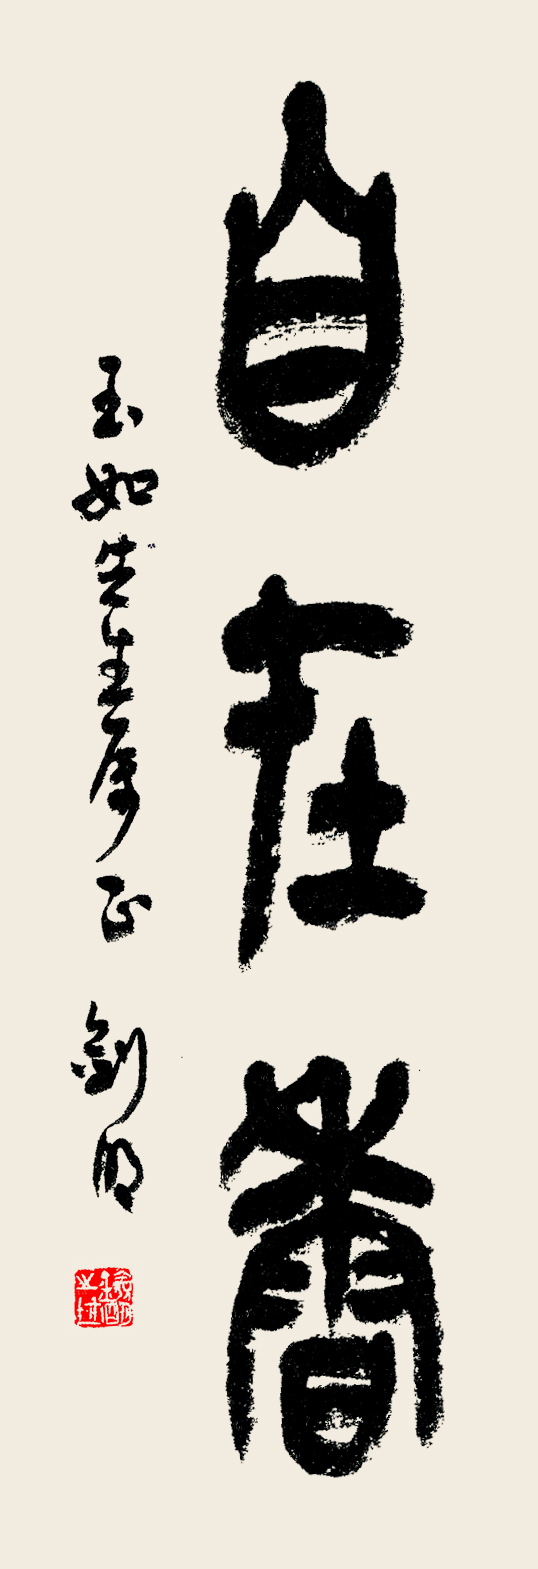 自在香
玉如先生属正
剑明